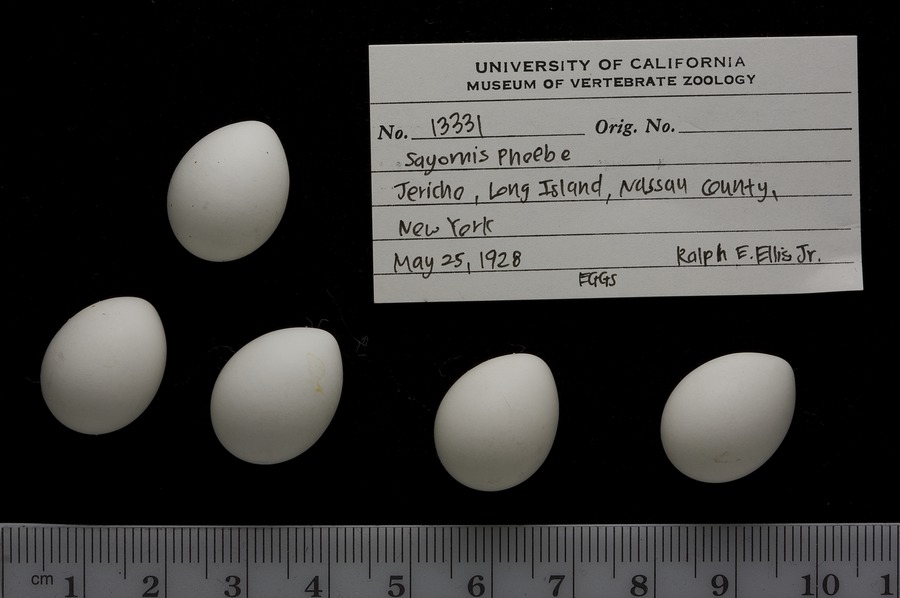 UNIVERSITY OF CALIFORNIA
MUSEUM OF VERTEBRATE ZOOLOGY
No. 13331 Orig. No.
Sayornis Phoebe
Jericho, Long Island, Nassau County,
New York
May 25, 1928 Ralph E. Ellis Jr.
EGGS
cm 1 2 3 4 5 6 7 8 9 10 1